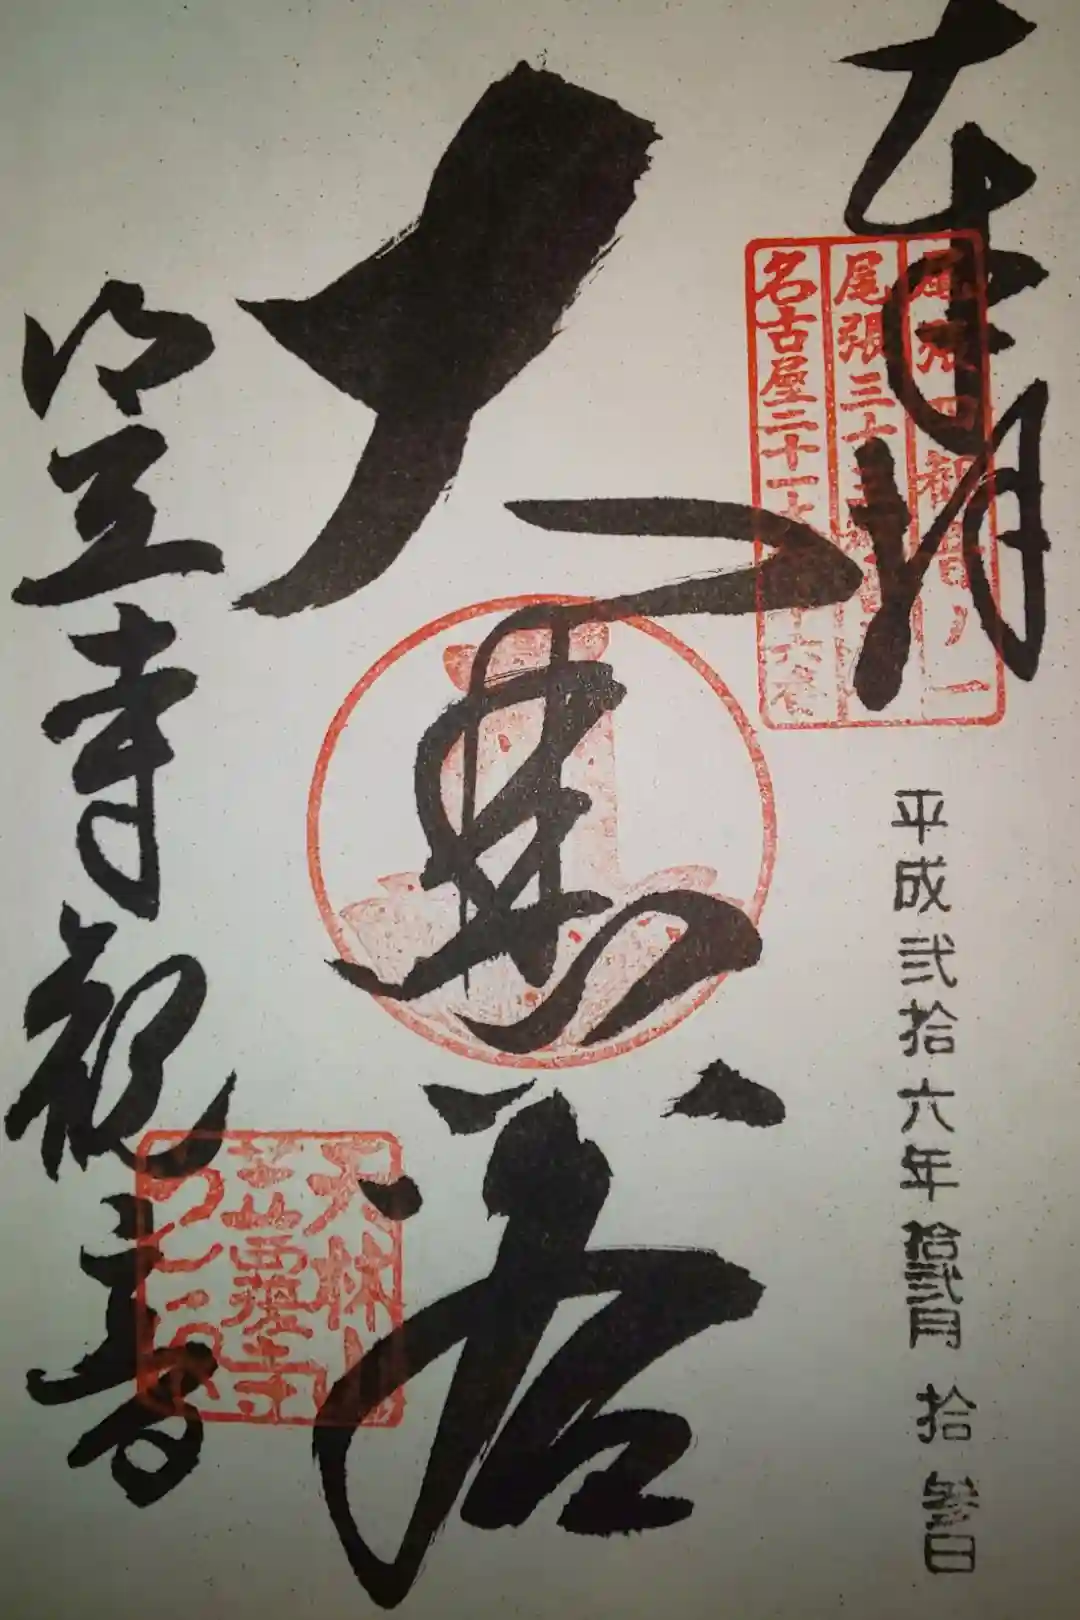 奉拝
尾張四観音ノ一
尾張三十三
名古屋二十一大
平成弐拾六年拾弐月拾参日
大悲閣
天林山
笠覆寺
笠寺観音